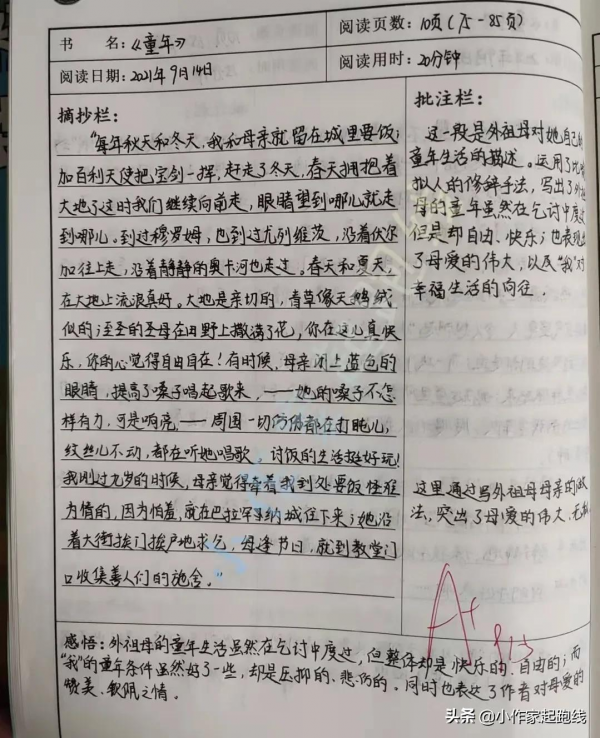 书 名：《童年》
阅读页数：10页（75-85页）
阅读日期：2021年9月14日
阅读用时：20分钟
摘抄栏：
“每年秋天和冬天，我和母亲就留在城里要饭；
加百利天使把宝剑一挥，赶走了冬天，春天拥抱着
大地了这时我们继续向前走，眼睛望到哪儿就走
到哪儿。到过穆罗姆，也到过尤列维茨，沿着伏尔
加往上走，沿着静静的奥卡河也走过。春天和夏天，
在大地上流浪真好。大地是亲切的，青草像天鹅绒
似的；至圣的圣母在田野上撒满了花，你在这儿真快
乐，你的心觉得自由自在！有时候，母亲闭上蓝色的
眼睛，提高了嗓子唱起歌来，——她的嗓子不怎
样有力，可是响亮——周围一切仿佛都在打盹儿，
纹丝儿不动，都在听她唱歌。讨饭的生活挺好玩！
我刚过九岁的时候，母亲觉得牵着我到处要饭怪难
为情的，因为怕羞，就在巴拉罕纳城住下来；她沿
着大街挨门挨户地求乞，每逢节日，就到教堂门
口收集善人们的施舍。”
批注栏：
这一段是外祖母对她自己的
童年生活的描述。运用了比喻
拟人的修辞手法，写出了外祖
母的童年虽然在乞讨中度过
但是却自由、快乐；也表现出
了母爱的伟大，以及“我”对
幸福生活的向往。
这里通过写外祖母母亲的做
法，突出了母爱的伟大、无私
A+
感悟：外祖母的童年生活虽然在乞讨中度过，但整体却是快乐的、自由的；而
“我”的童年条件虽然好了一些，却是压抑的、悲伤的。同时也表达了作者对母爱的
赞美、歌颂之情。
头条 @小作家起跑线